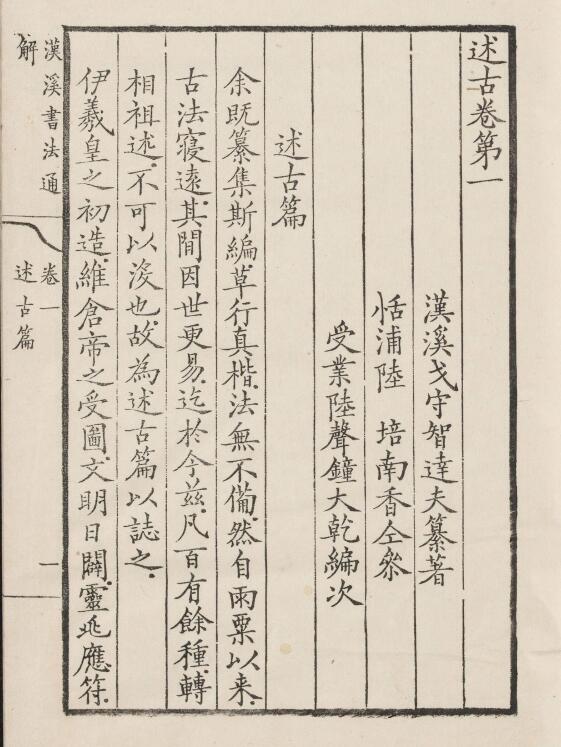 述古卷第一
漢溪戈守智達夫纂著
恬浦陸 培南香仝叅
受業陸聲鐘大乾編次
述古篇
余既纂集斯編草行真楷法無不備然自雨粟以来
古法寖遠其間因世更易迄於今兹凡百有餘種轉
相祖述不可以没也故為述古篇以誌之
伊羲皇之初造維倉帝之受圖文明日闢靈兆應符
漢溪書法通解
卷一
述古篇
一